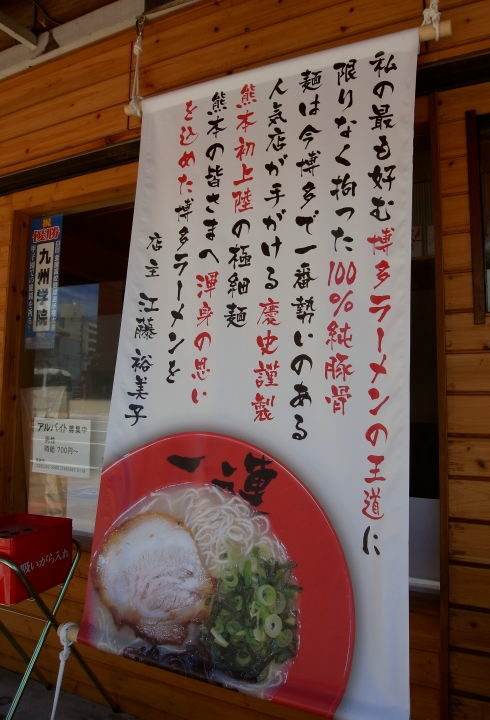 私の最も好む博多ラーメンの王道に
限りなく拘った100%純豚骨
麺は今博多で一番勢いのある
人気店が手がける慶史謹製
熊本初上陸の極細麺
熊本の皆さまへ渾身の思い
を込めた博多ラーメンを
店主 江藤 裕美子
一連
祝
優勝
九州学院
アルバイト募集中
男性
時給700円〜
吸いがら入れ